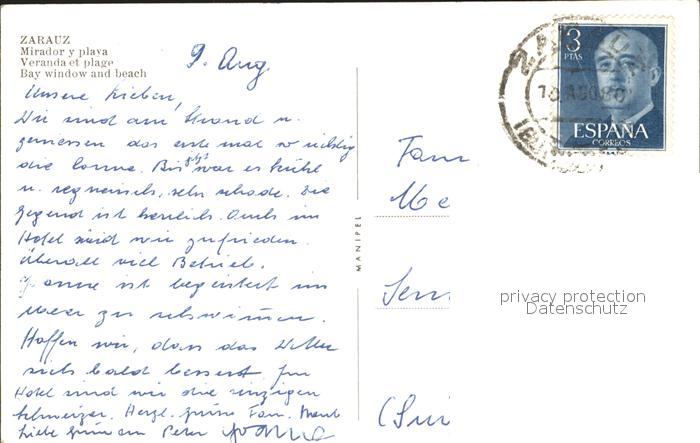 ZARAUZ
Mirador y playa
Veranda et plage
Bay window and beach
9. Aug.
Unsere Lieben,
Wir sind am Strand u.
geniessen das erste mal so richtig
die Sonne. Bis jetzt war es kühl
u. regnerisch, sehr schade. Die
Gegend ist herrlich. Auch im
Hotel sind wir zufrieden.
Überall viel Betrieb.
ist begeistert im
Meer zu schwimmen.
Hoffen wir, dass das Wetter
sich bald bessert. Im
Hotel sind wir die einzigen
Schweizer. Herzl. Grüsse Fam.
Liebe Peter Yvonne
MANIPEL
3
PTAS
ESPAÑA
CORREOS
Fam
Me
privacy protection
Datenschutz